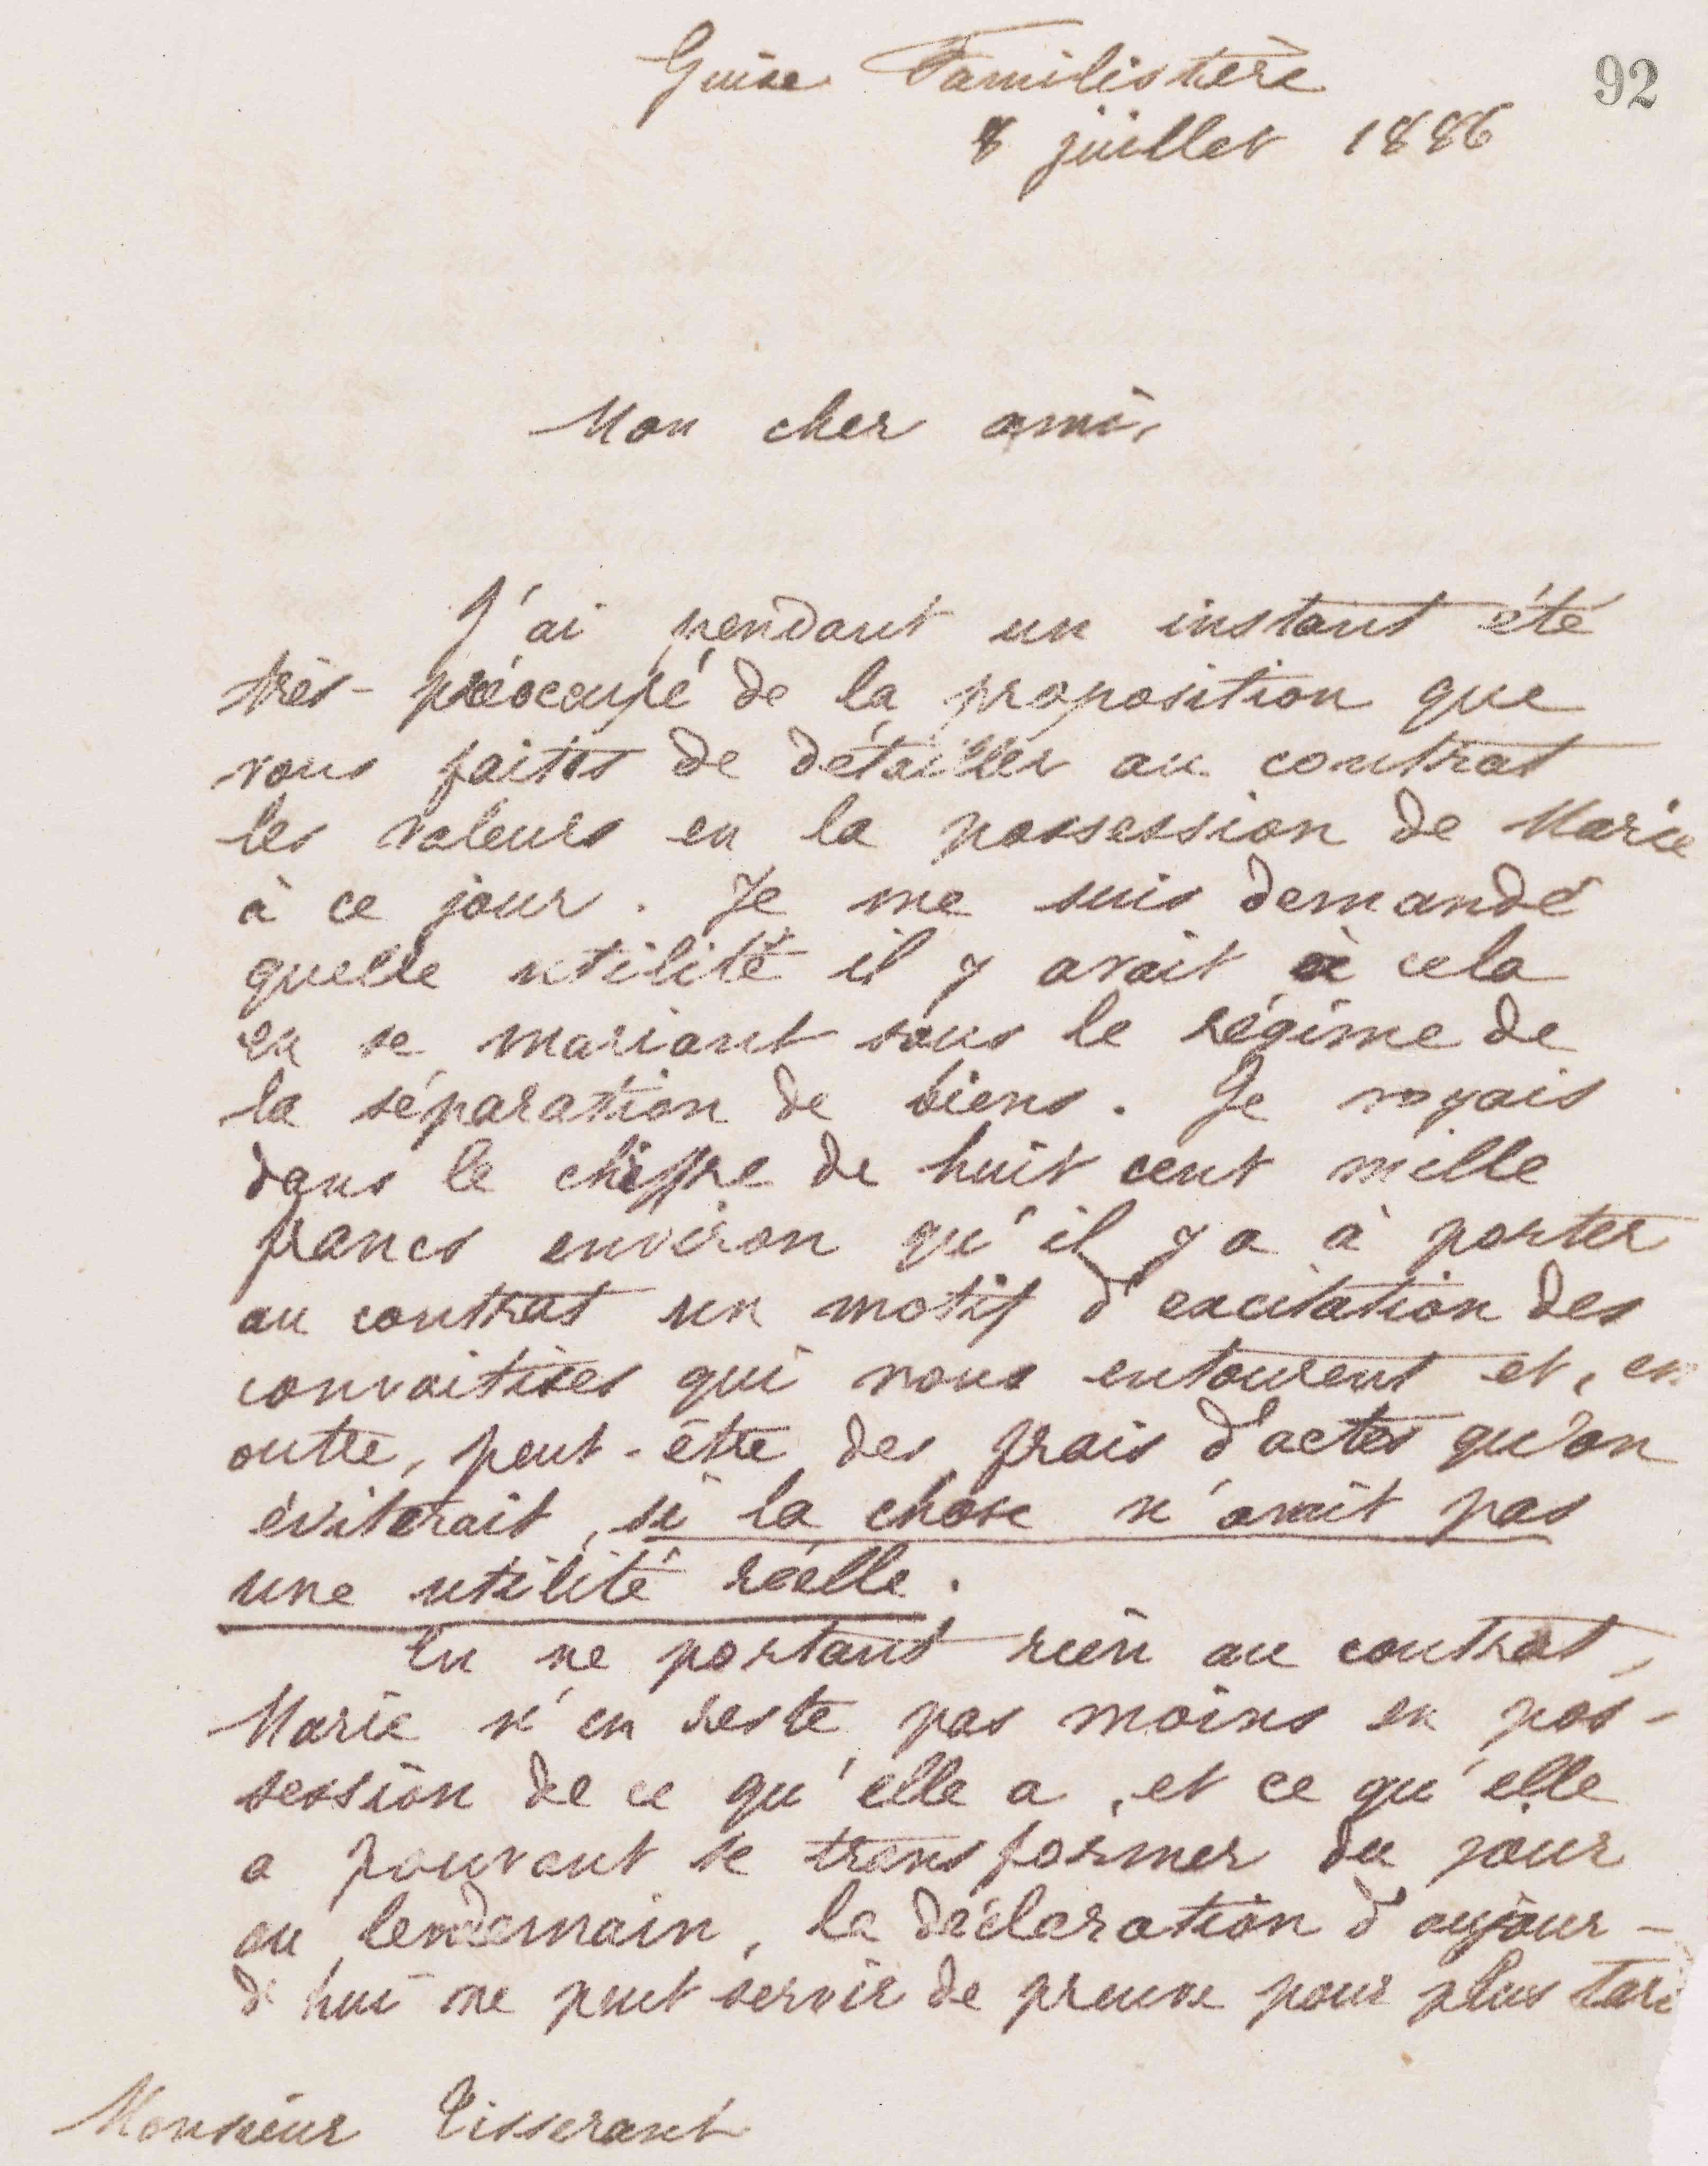 Guise Familistère
92
8 juillet 1886
Mon cher ami,
J'ai pendant un instant été
très-préoccupé de la proposition que
vous faites de détailler au contrat
les valeurs en la possession de Marie
à ce jour. Je me suis demandé
quelle utilité il y avait à cela
en se mariant sous le régime de
la séparation de biens. Je voyais
dans le chiffre de huit cent mille
francs environ qu'il y a à porter
au contrat un motif d'excitation des
convoitises qui nous entourent et, en
outre, peut-être des frais d'actes qu'on
éviterait, si la chose n'avait pas
une utilité réelle.
En ne portant rien au contrat,
Marie n'en reste pas moins en pos-
session de ce qu'elle a, et ce qu'elle
a pouvant se transformer du jour
au lendemain, la déclaration d'aujour-
d'hui ne peut servir de preuve pour plus tard
Monsieur Tisserant